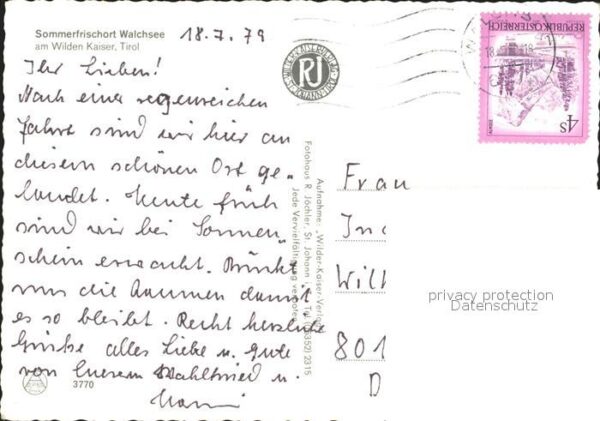 Sommerfrischort Walchsee
am Wilden Kaiser, Tirol
18.7.79
Ihr Lieben!
Nach einer regenreichen
Fahrt sind wir hier an
diesem schönen Ort ge-
landet. Heute früh
sind wir bei Sonnen-
schein erwacht. Drückt
uns die Daumen damit
es so bleibt. Recht herzliche
Grüße alles Liebe u. Gute
von Eurem u.
3770
RJ
ST. JOHANN TIROL
Aufnahme: „Wilder-Kaiser-Verlag"
Fotohaus R. Jöchler, St. Johann i. T.
2315
Jede Vervielfältigung
REPUBLIK ÖSTERREICH
4S
18
Frau
In
Wil
801
D
privacy protection
Datenschutz